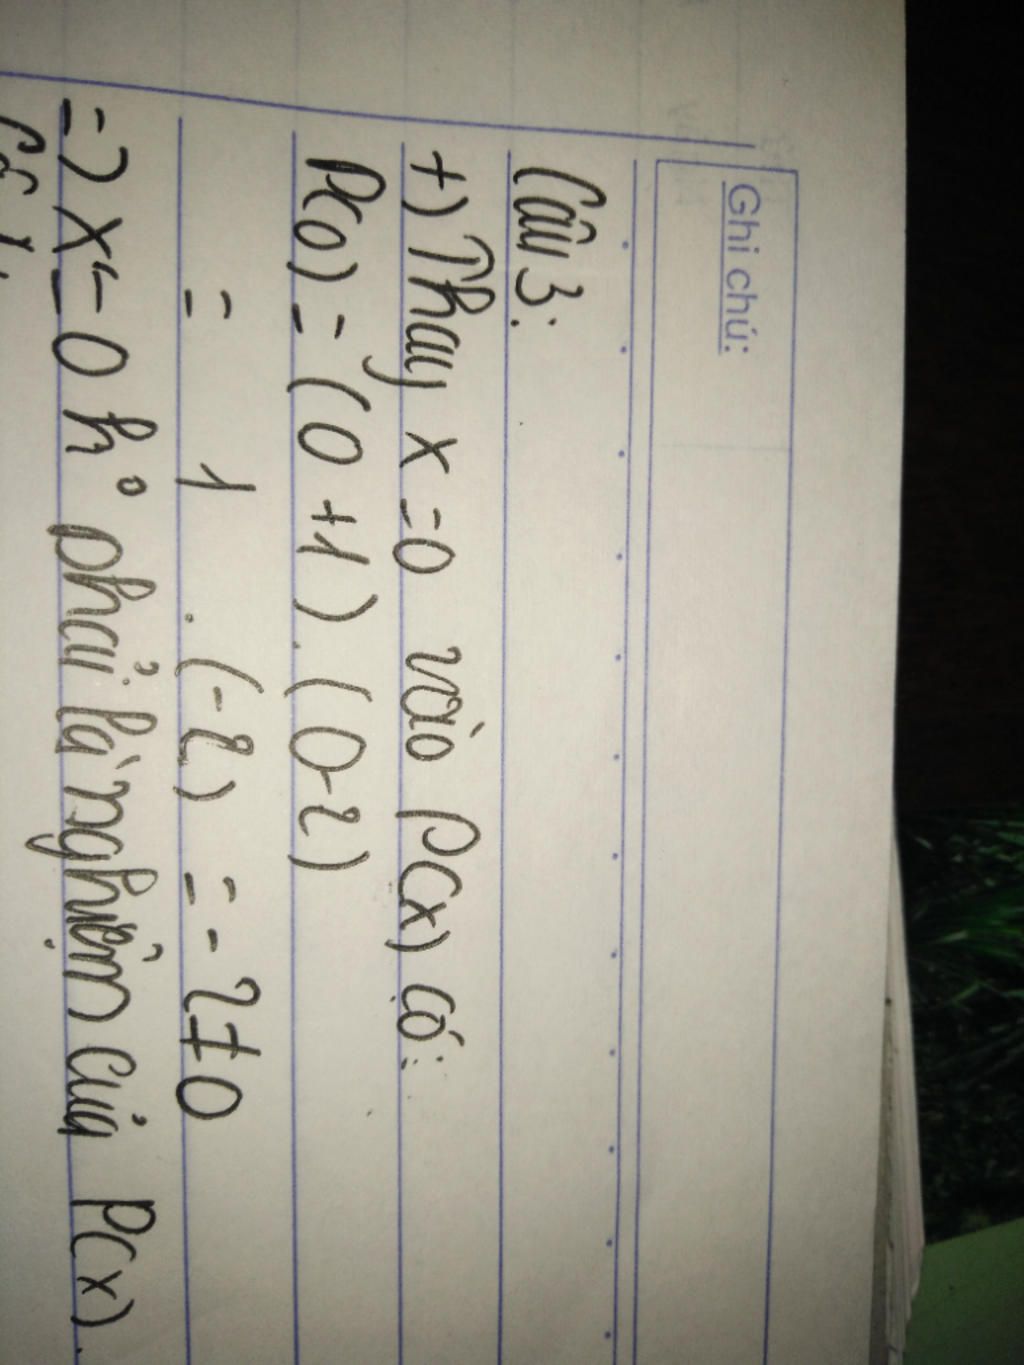 Ghi chú:
Câu 3:
+) Thay x = 0 vào P(x) có:
P(0) = (0 + 1) . (0 - 2)
= 1 . (-2) = -2 ≠ 0
=> x = 0 k° phải là nghiệm của P(x).